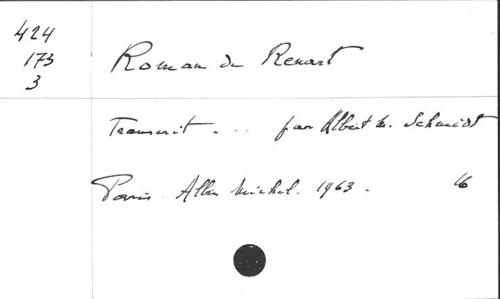 424
173
3
Roman de Renart
Transcrit ... par Albert M. Schmidt
Paris. Albin Michel. 1963. 16